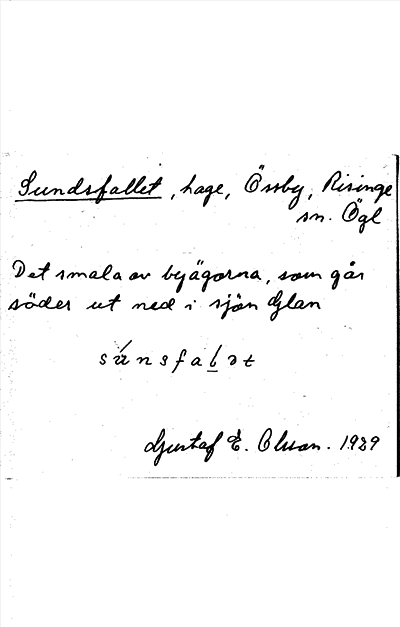 Sundsfallet, hage, Össby, Risinge
sn. Ögl
Det smala av byägorna, som går
söder ut ned i sjön Glan
súnsfalət
Gustaf E. Olsson. 1929